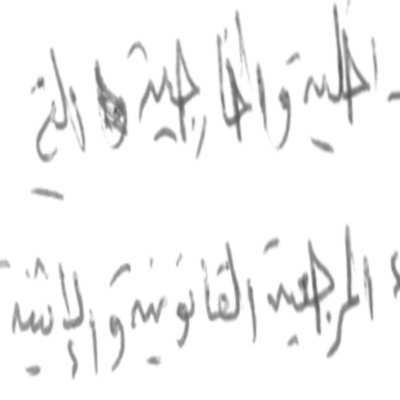 اخلية والخارجية التي
المرجعية القانونية والإثنية